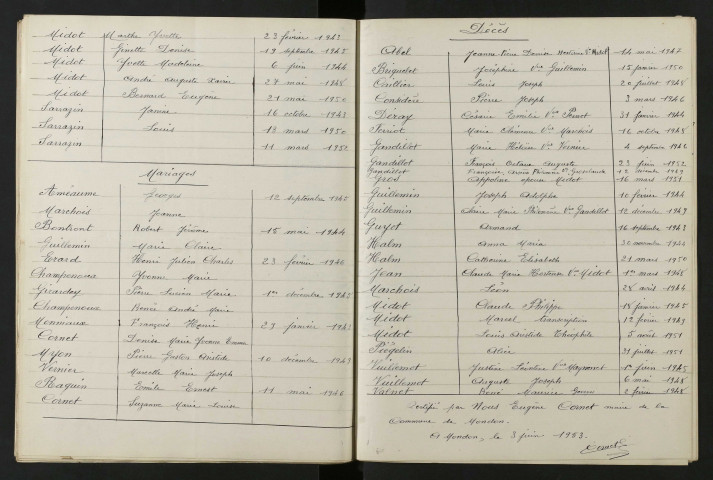 Midot Marthe Yvette 23 février 1943
Midot Ginette Denise 19 septembre 1945
Midot Yvette Madeleine 6 juin 1944
Midot André Auguste Xavier 27 mai 1948
Midot Bernard Eugène 21 mai 1950
Sarrazin Janine 16 octobre 1948
Sarrazin Louis 13 mars 1950
Sarrazin 11 mars 1952
Mariages
Améaume Georges 12 septembre 1945
Marchois Jeanne
Bontront Robert Jérôme 15 mai 1944
Guillemin Marie Claire
Evard Henri Julien Charles 23 février 1946
Champenois Yvonne Marie
Girardey Pierre Lucien Marie 1er décembre 1945
Champenois Renée Andrée Marie
Monnieaux François Henri 23 janvier 1943
Cornet Denise Marie Yvonne
Myon Pierre Gaston Aristide 10 décembre 1949
Vernier Marcelle Marie Joseph
Raguin Emile Ernest 11 mai 1946
Cornet Suzanne Marie Louise
Décès
Abel Jeanne 14 mai 1944
Briguelet Joséphine Vve Guillemin 15 janvier 1950
Cuillier Louis Joseph 20 juillet 1948
Pierre Joseph 3 mars 1946
Deray Césarie Emélie Vve 1944
Ferriot Marie Vve Marchois 16 octobre 1948
Gaudillot Marie Hélène Vve Vernier 4 septembre 1946
Gaudillot François Octave Auguste 23 juin 1952
Gaudillot 12 décembre 1949
Gros Appoline épouse Midot 16 mars 1951
Guillemin Joseph Adolphe 10 février 1944
Guillemin Marie Vve Gaudillot 12 décembre 1949
Guyot Armand 16 septembre 1943
Halm Anna Maria 30 novembre 1944
Halm Catherine Elisabeth 21 mars 1950
Jean Claude Marie Hortense Vve Midot 1er mars 1948
Marchois Léon 28 août 1944
Midot Claude Philippe 18 février 1945
Midot Marcel 12 février 1943
Midot Louis Aristide Théophile 5 août 1951
Alice 31 juillet 1951
Vuillemot Justine Vve 1er juin 1945
Vuillemot Auguste Joseph 6 mai 1948
René Maurice 2 février 1948
Certifié par Nous Eugène Cornet maire de la
Commune de Mondon.
A Mondon, le 3 juin 1953.
Cornet E